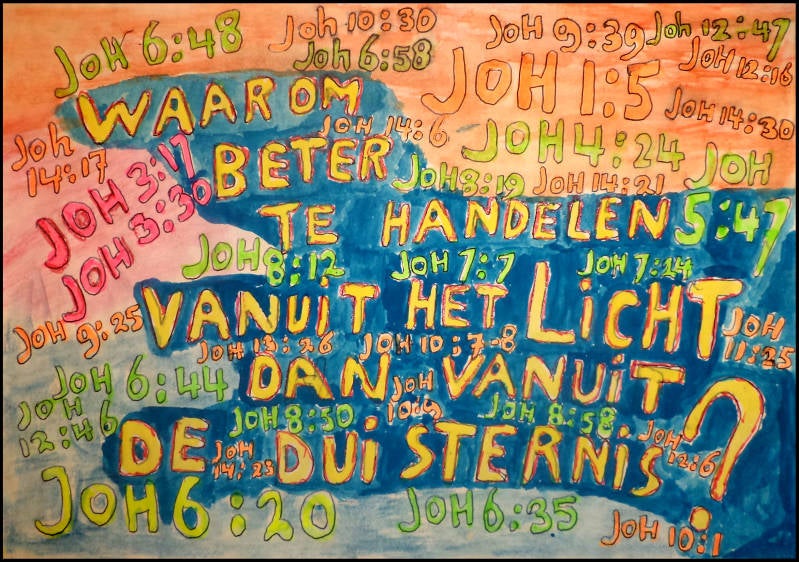 JOH 6:48 Joh 10:30 JOH 9:39 Joh 12:47
Joh 6:58 JOH 12:16
JOH 1:5
WAAROM JOH 14:30
Joh 14:17 JOH 14:6 JOH 4:24
JOH 3:17 BETER JOH 5:47
JOH 3:30 JOH 8:19 JOH 14:21
TE HANDELEN
JOH 8:12 JOH 7:7 JOH 7:24
VANUiT HET LiCHT
JOH 9:25 JOH 11:25
JOH 13:26 JOH 10:7-8
JOH 6:44 DAN VANUiT ?
JOH 10:9
JOH 12:46 JOH 8:50 JOH 8:58
DE DUiSTERNiS JOH 12:6
JOH 14:23
JOH 6:20 JOH 6:35 JOH 10:1